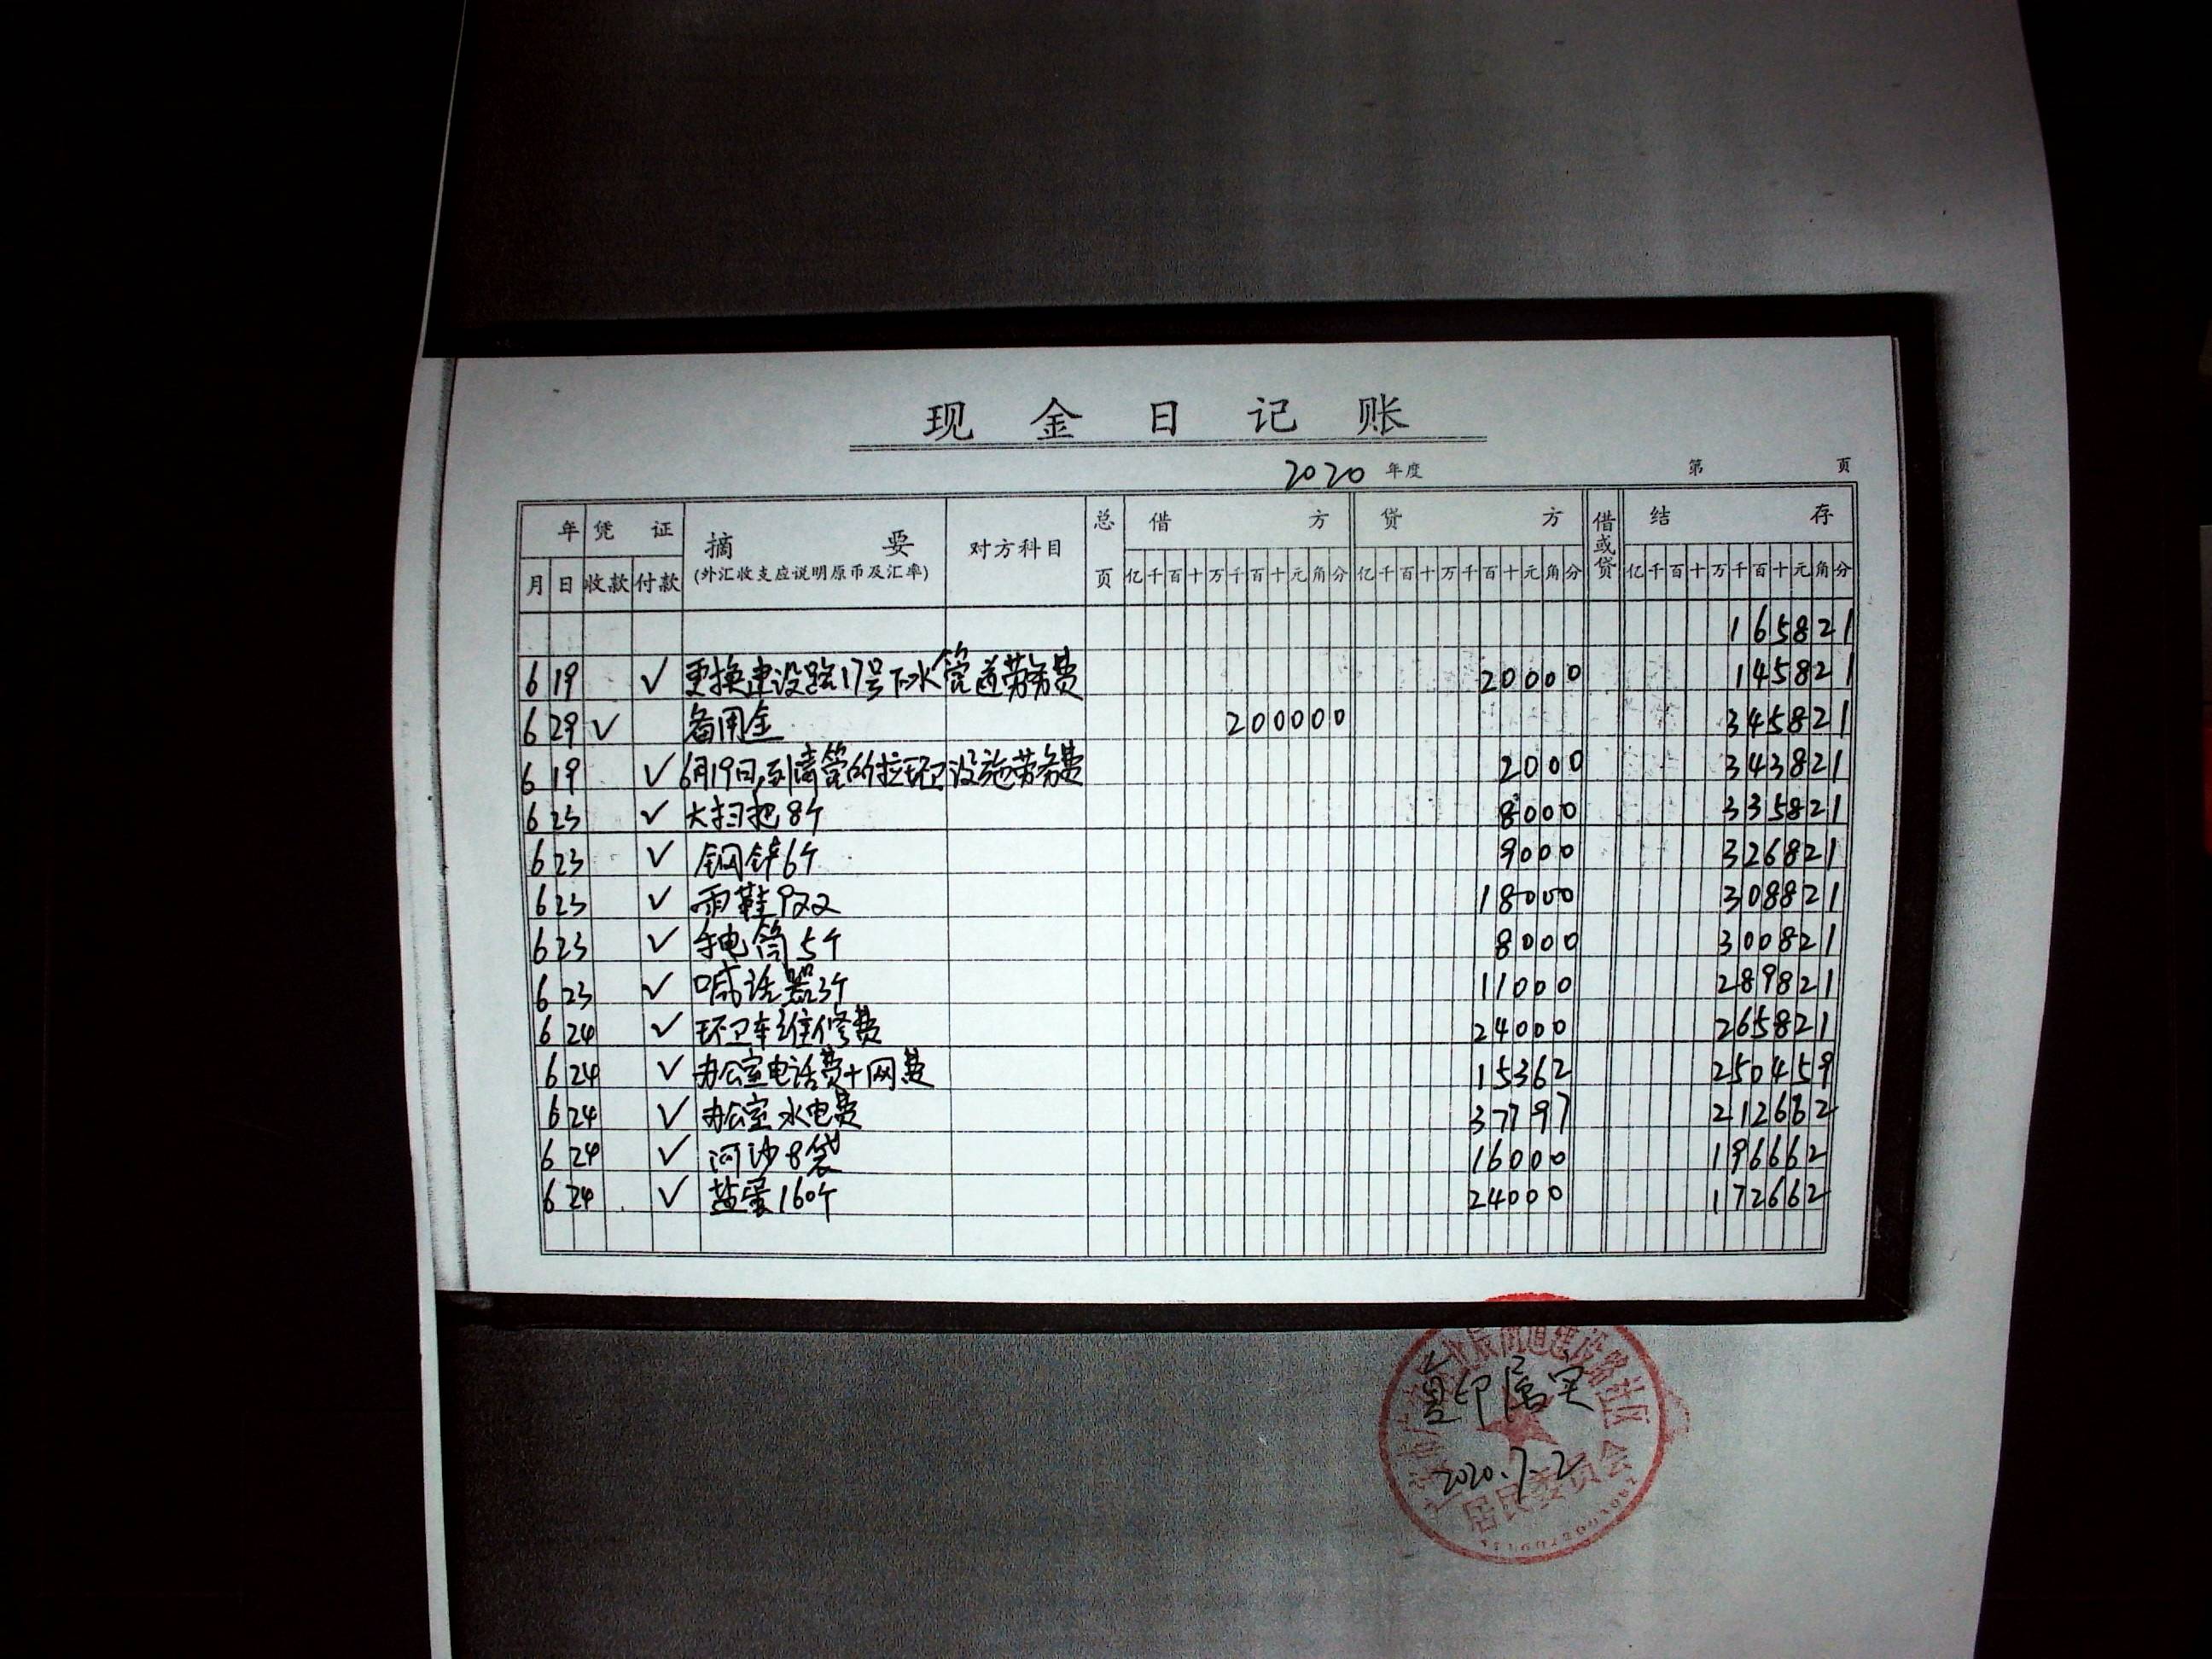 现金日记账
2020 年度 第 页
年 凭证 摘要 对方科目 总页 借方 贷方 借或贷 结存
月 日 收款 付款 (外汇收支应说明原币及汇率) 亿千百十万千百十元角分 亿千百十万千百十元角分 亿千百十万千百十元角分
165821
6 19 √ 更换建设路17号下水管道劳务费 20000 145821
6 29 √ 备用金 200000 345821
6 19 √ 6月19日,到 管的拉环卫设施劳务费 2000 343821
6 23 √ 大扫把8个 8000 335821
6 23 √ 钢铲6个 9000 326821
6 23 √ 雨鞋9双 18000 308821
6 23 √ 手电筒5个 8000 300821
6 23 √ 喊话器3个 11000 289821
6 24 √ 环卫车维修费 24000 265821
6 24 √ 办公室电话费+网费 15362 250459
6 24 √ 办公室水电费 37797 212662
6 24 √ 河沙8袋 16000 196662
6 24 √ 盐蛋160个 24000 172662
街道建设路社区
复印属实
2020.7.2
居民委员会